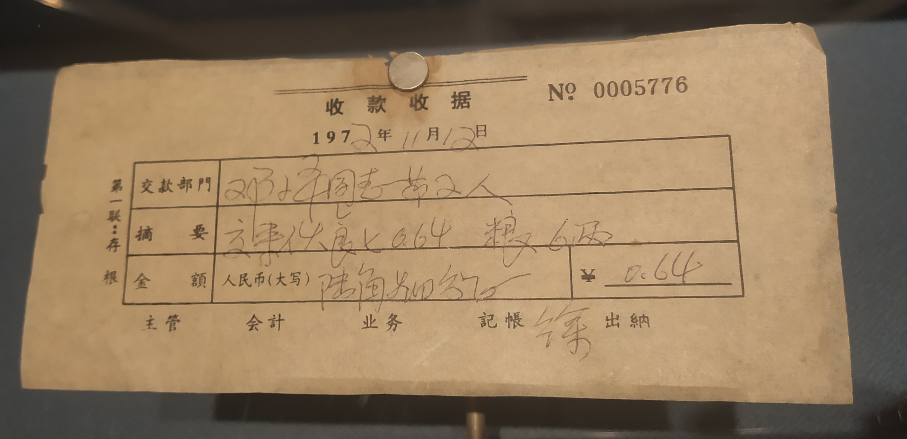 收款收据
№ 0005776
1972年11月12日
第一联:存根
交款部门 邓小平同志 人
摘要 交来伙食 0.64 粮 6两
金额 人民币(大写) 陆角肆分 ¥ 0.64
主管 会计 业务 記帳 徐 出納